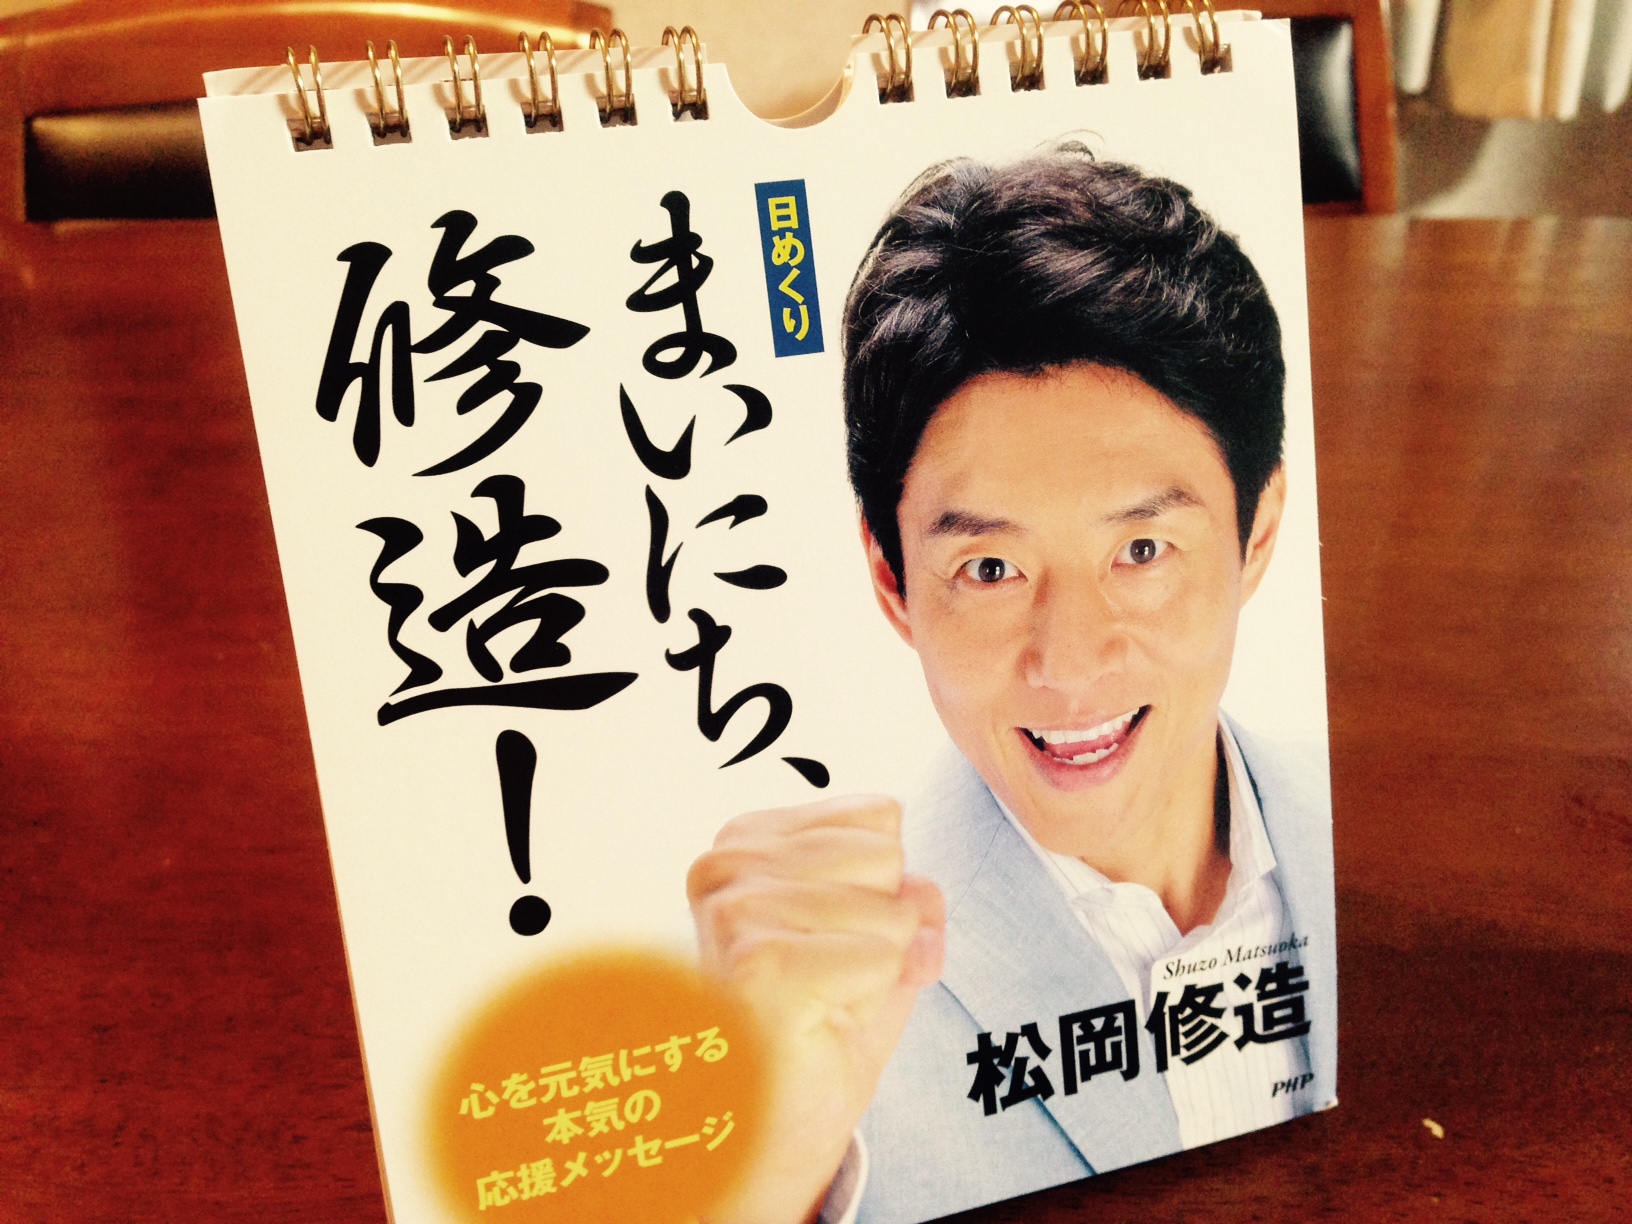 日めくり
まいにち、
修造!
心を元気にする
本気の
応援メッセージ
Shuzo Matsuoka
松岡修造
PHP